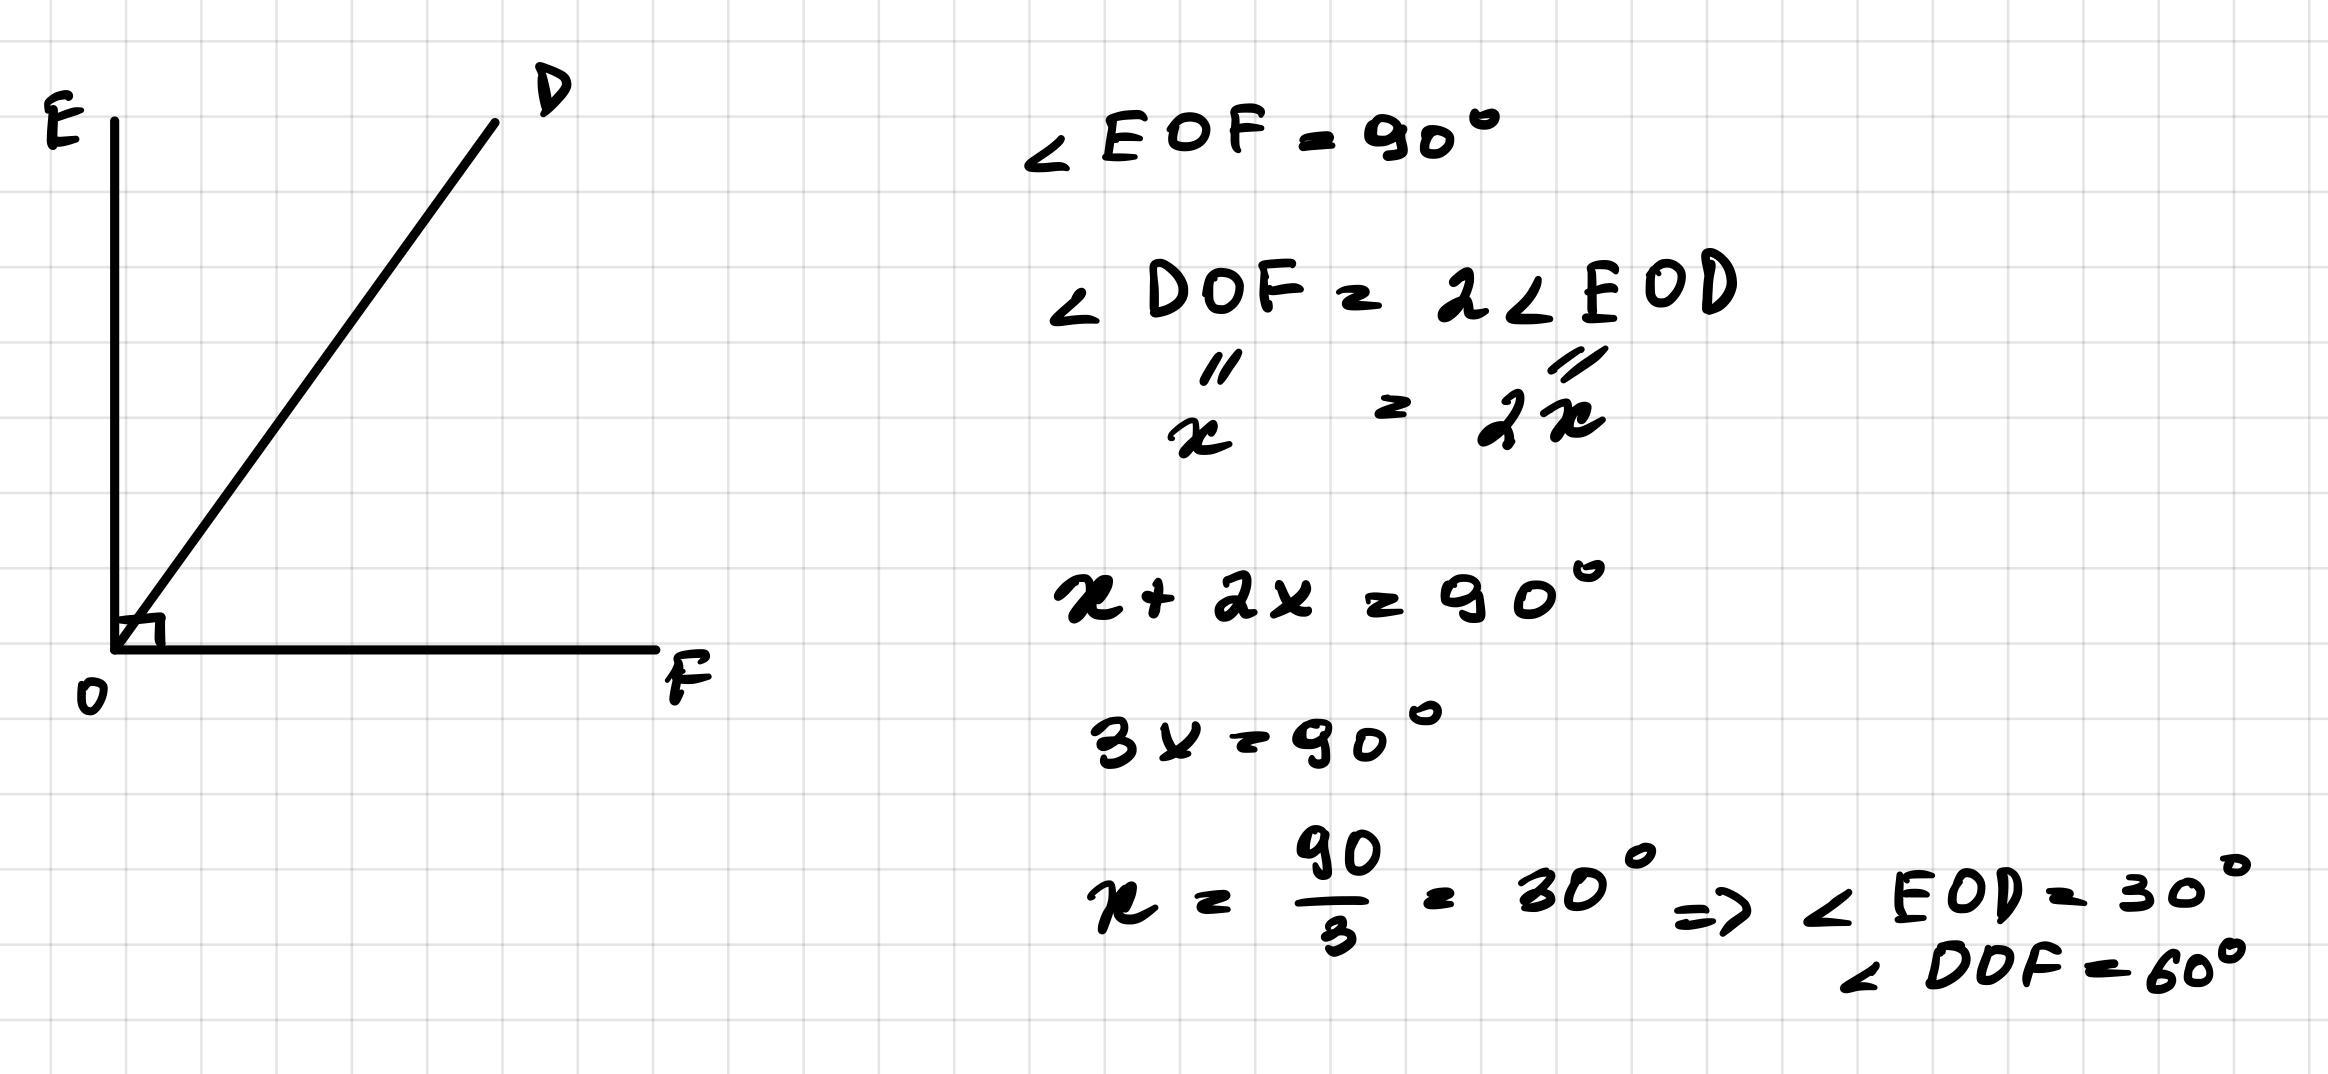 E
D
O
F
∠EOF = 90°
∠DOF = 2∠EOD
// //
x = 2x
x + 2x = 90°
3x = 90°
x = 90/3 = 30° => ∠EOD = 30°
∠DOF = 60°